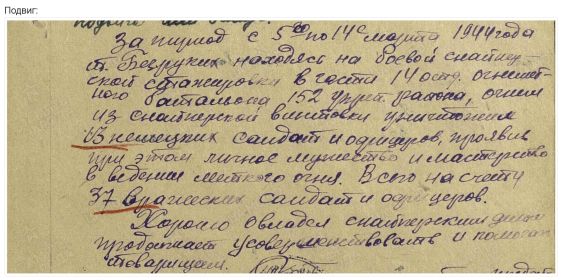 Подвиг:
За период с 5го по 14е марта 1944 года
ст. Безруких находясь на боевой снайпер-
ской стажировки в части 14 отд. огнемет-
ного батальона 152 укреп. района, огнем
из снайперской винтовки уничтожил
13 немецких солдат и офицеров, проявив
при этом личное мужество и мастерство
в ведении меткого огня. Всего на счету
37 вражеских солдат и офицеров.
Хорошо овладел снайперским делом
продолжает усовершенствовать и помогает
товарищем.